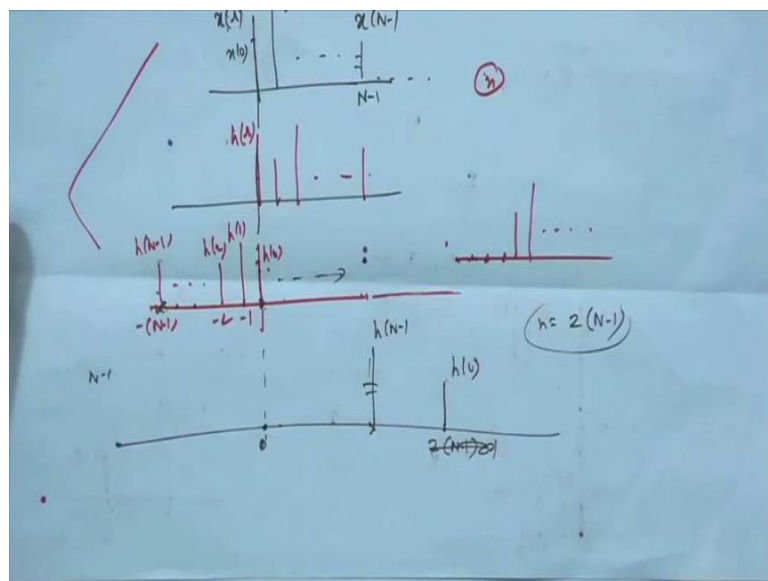 x(k) x(N-1)
x(0)
N-1
n
h(k)
h(N-1) h(2) h(1) h(0)
-(N-1) -2 -1
n = 2(N-1)
h(N-1)
h(0)
N-1
0